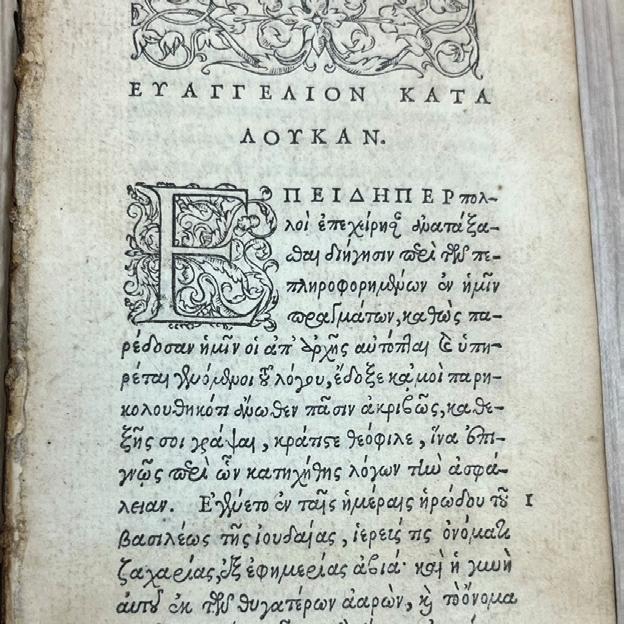 ΕΥΑΓΓΕΛΙΟΝ ΚΑΤΑ
ΛΟΥΚΑΝ.
ΕΠΕΙΔΗΠΕΡ πολ-
λοὶ ἐπεχείρησαν ἀνατάξα-
σθαι διήγησιν περὶ τῶν πε-
πληροφορημένων ἐν ἡμῖν
πραγμάτων, καθὼς πα-
ρέδοσαν ἡμῖν οἱ ἀπ' ἀρχῆς αὐτόπται καὶ ὑπη-
ρέται γενόμενοι τοῦ λόγου, ἔδοξε κᾀμοὶ παρη-
κολουθηκότι ἄνωθεν πᾶσιν ἀκριβῶς, καθε-
ξῆς σοι γράψαι, κράτιστε θεόφιλε, ἵνα ἐπι-
γνῷς περὶ ὧν κατηχήθης λόγων τὴν ἀσφά-
λειαν. Ἐγένετο ἐν ταῖς ἡμέραις ἡρώδου τοῦ 1
βασιλέως τῆς ἰουδαίας, ἱερεύς τις ὀνόματι
ζαχαρίας, ἐξ ἐφημερίας ἀβιά· καὶ ἡ γυνὴ
αὐτοῦ ἐκ τῶν θυγατέρων ἀαρών, καὶ τὸ ὄνομα